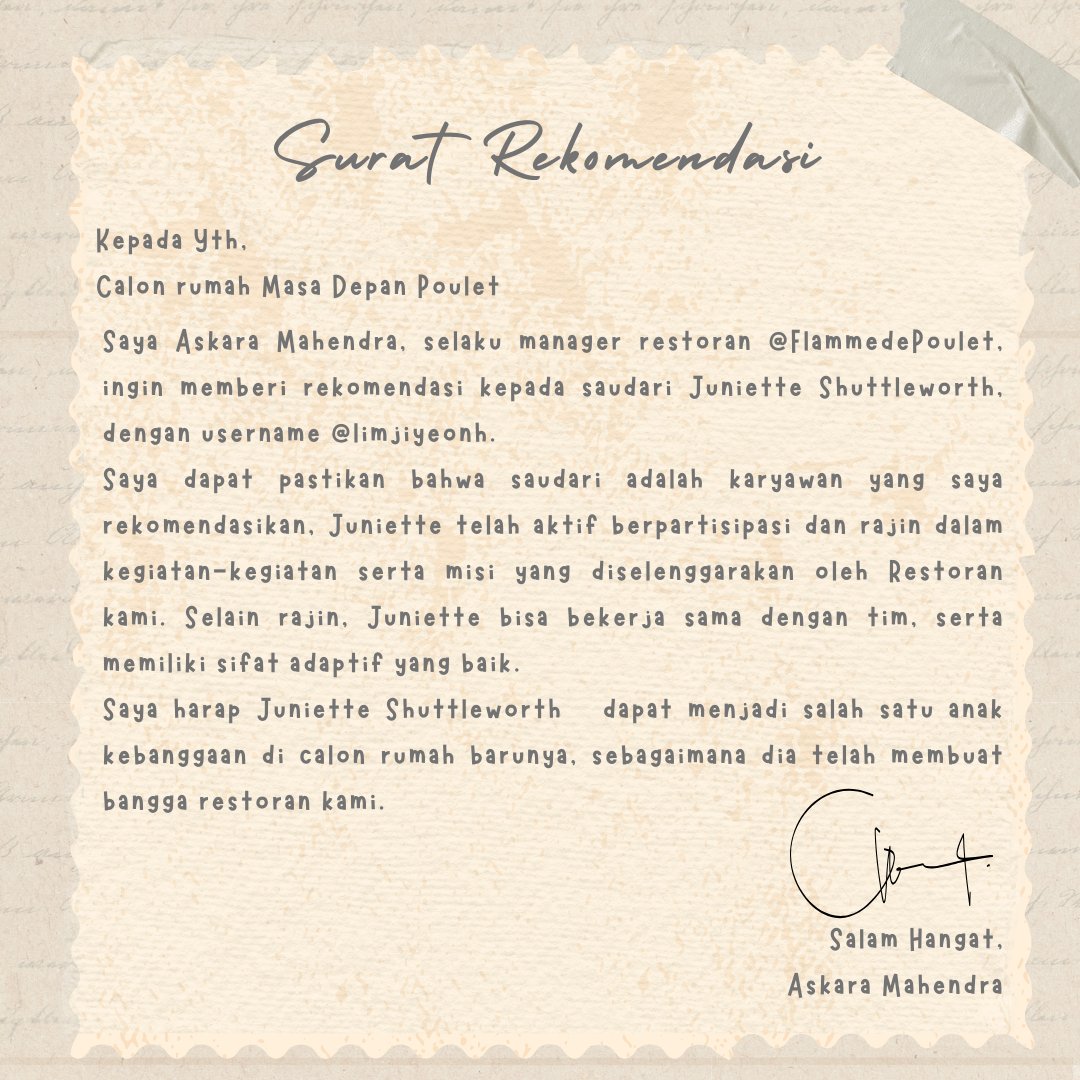 Surat Rekomendasi
Kepada Yth,
Calon rumah Masa Depan Poulet
Saya Askara Mahendra, selaku manager restoran @FlammedePoulet,
ingin memberi rekomendasi kepada saudari Juniette Shuttleworth,
dengan username @limjiyeonh.
Saya dapat pastikan bahwa saudari adalah karyawan yang saya
rekomendasikan, Juniette telah aktif berpartisipasi dan rajin dalam
kegiatan-kegiatan serta misi yang diselenggarakan oleh Restoran
kami. Selain rajin, Juniette bisa bekerja sama dengan tim, serta
memiliki sifat adaptif yang baik.
Saya harap Juniette Shuttleworth dapat menjadi salah satu anak
kebanggaan di calon rumah barunya, sebagaimana dia telah membuat
bangga restoran kami.
Salam Hangat,
Askara Mahendra